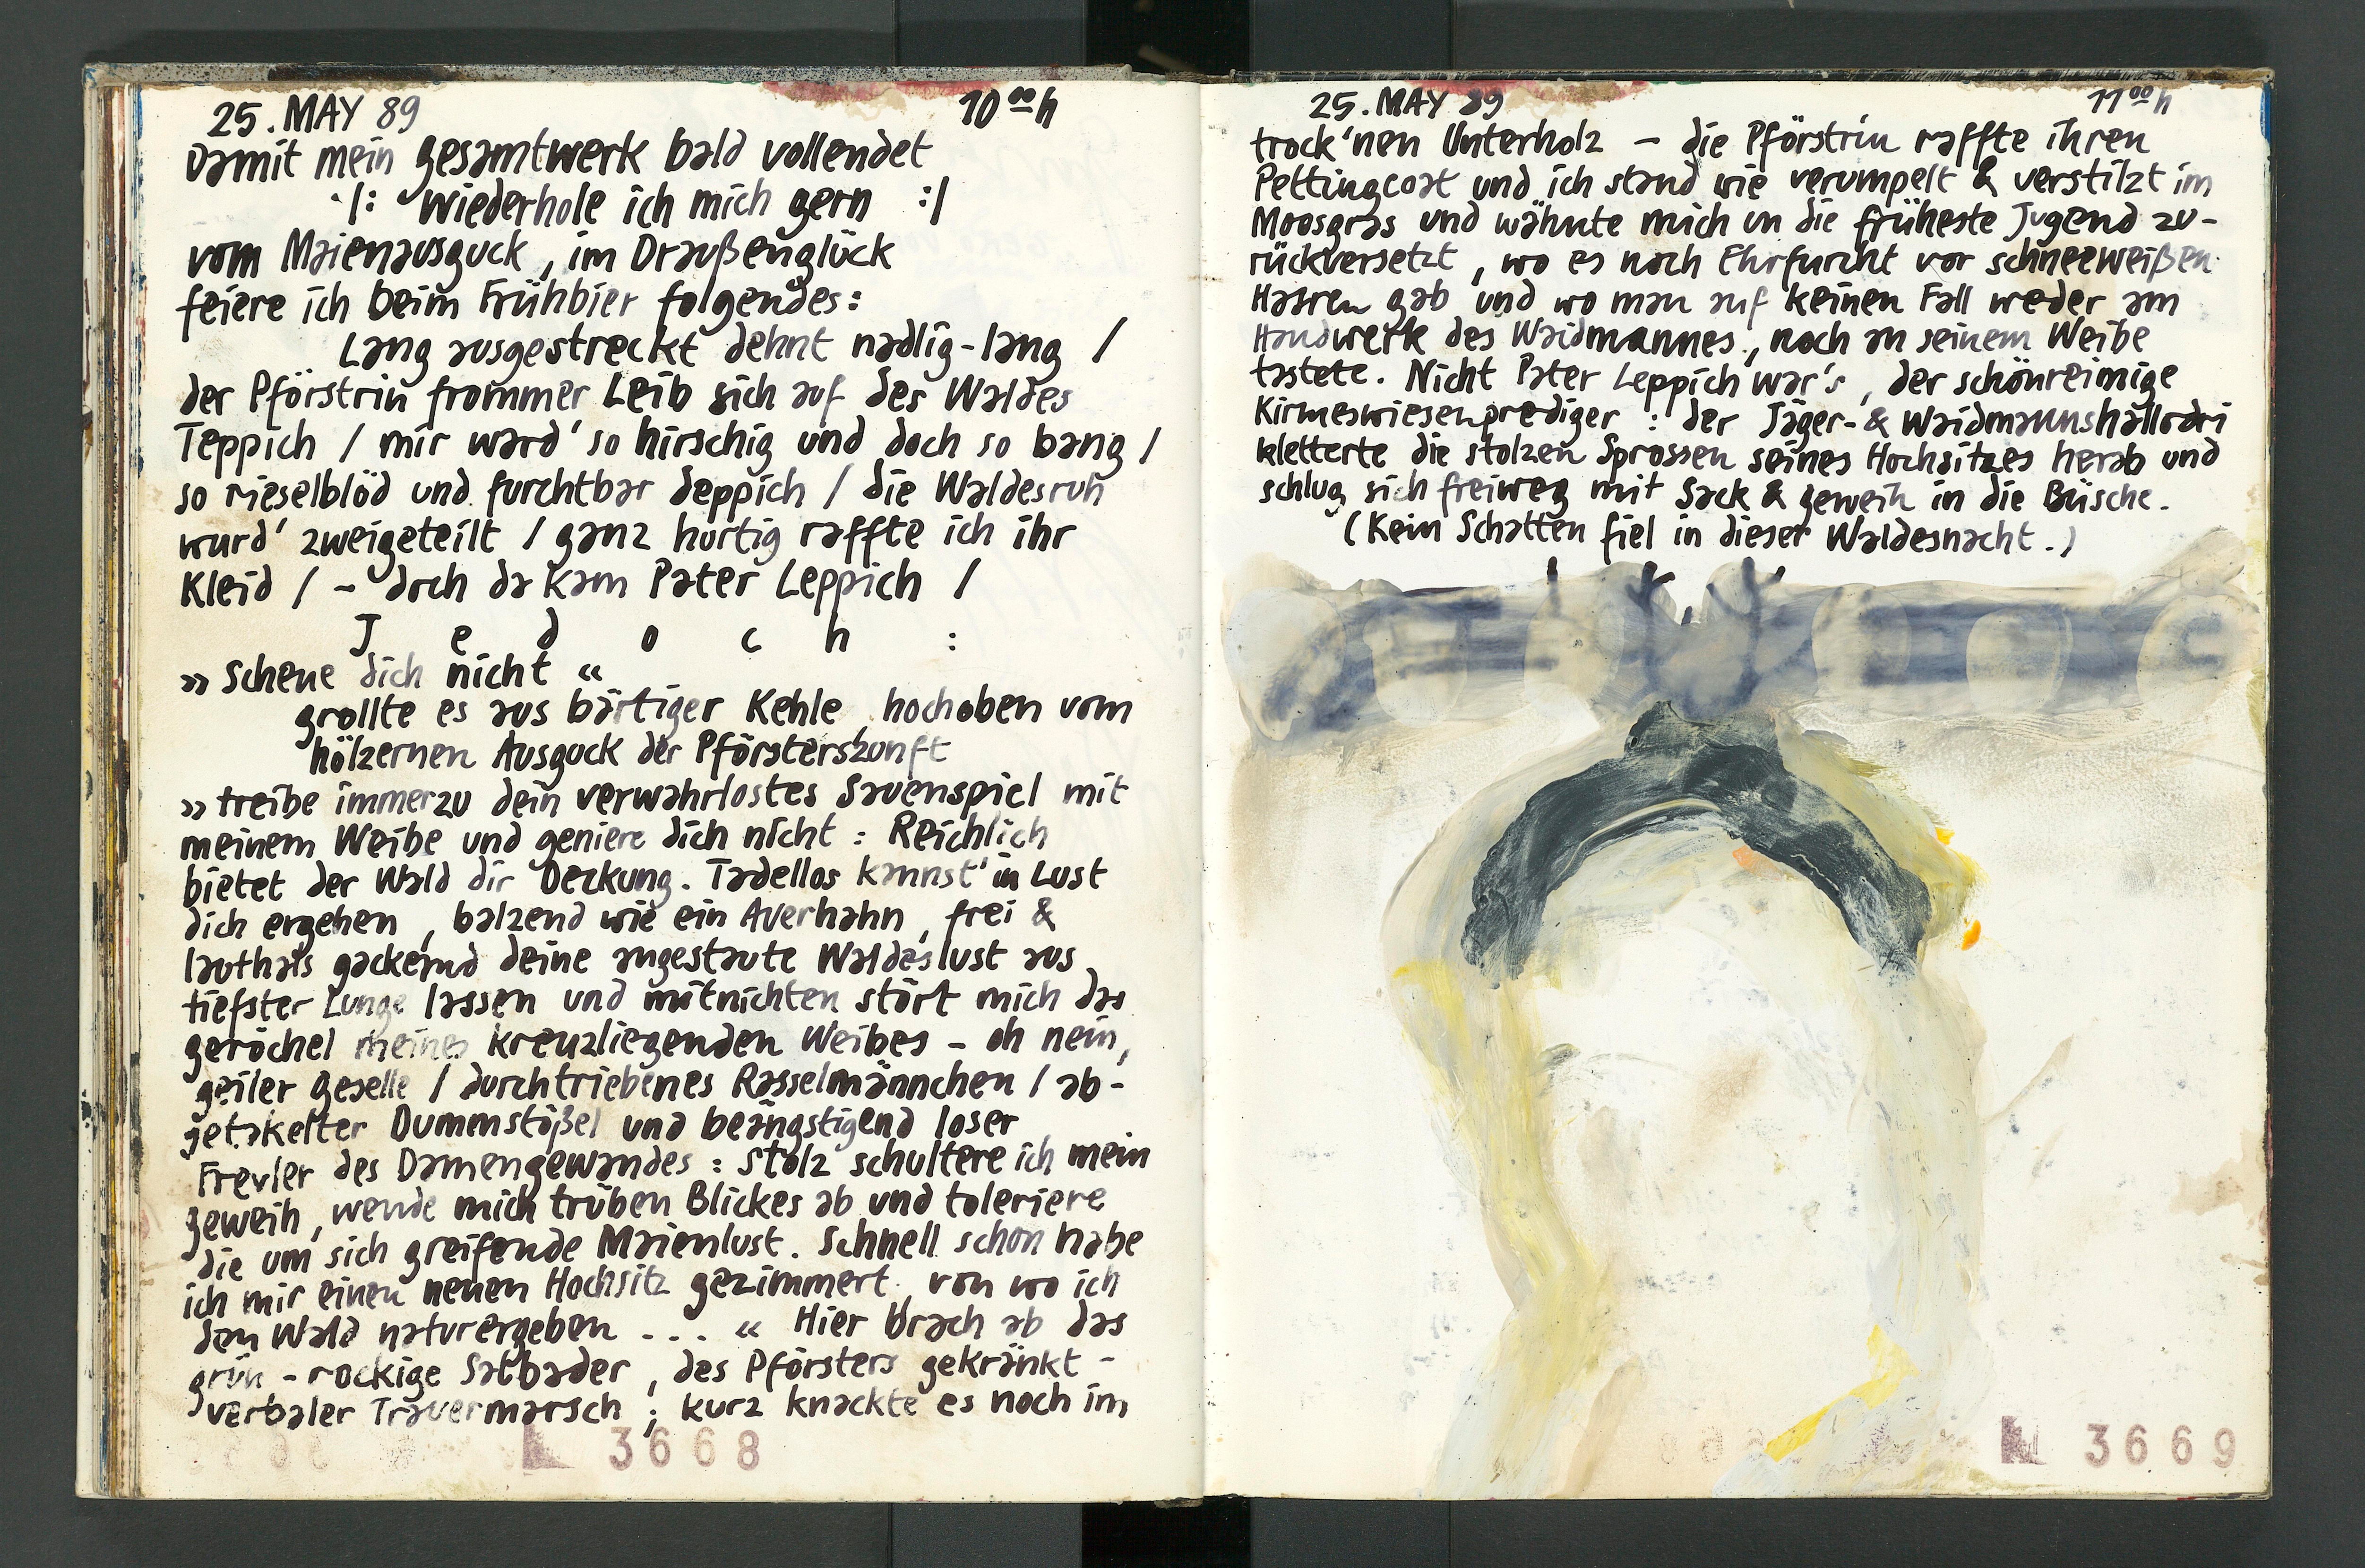 25. MAY 89 10 00 h
Damit mein Gesamtwerk bald vollendet
·/: Wiederhole ich mich gern :/
vom Maienausguck, im Draußenglück
feiere ich beim Frühbier folgendes:
Lang ausgestreckt dehnt nadlig-lang /
der Pförstrin frommer Leib sich auf des Waldes
Teppich / mir ward' so hirschig und doch so bang /
so rieselblöd und furchtbar deppich / die Waldesruh
wurd' zweigeteilt / ganz hurtig raffte ich ihr
Kleid / – doch da kam Pater Leppich /
J e d o c h :
»Scheue dich nicht«
grollte es aus bärtiger Kehle, hochoben vom
hölzernen Ausguck der Pförsterszunft
»treibe immerzu dein verwahrlostes Sauenspiel mit
meinem Weibe und geniere dich nicht: Reichlich
bietet der Wald dir Deckung. Tadellos kannst' in Lust
dich ergehen, balzend wie ein Auerhahn, frei &
lauthals gackernd deine angestaute Waldeslust aus
tiefster Lunge lassen und mitnichten stört mich das
Geröchel meines kreuzliegenden Weibes – oh nein,
geiler Geselle / durchtriebenes Rasselmännchen / ab-
getakelter Dummstößel und beängstigend loser
Frevler des Damengewandes: Stolz schultere ich mein
Geweih, wende mich trüben Blickes ab und toleriere
die um sich greifende Maienlust. Schnell schon habe
ich mir einen neuen Hochsitz gezimmert, von wo ich
den Wald naturergeben ... « Hier brach ab das
grün-rockige Salbader, des Pförsters gekränkt-
verbaler Trauermarsch; kurz knackte es noch im
3668
25. MAY 89 11 00 h
trock'nen Unterholz – die Pförstrin raffte ihren
Pettingcoat und ich stand wie verumpelt & verstilzt im
Moosgras und wähnte mich in die früheste Jugend zu-
rückversetzt, wo es noch Ehrfurcht vor schneeweißen
Haaren gab und wo man auf keinen Fall weder am
Handwerk des Waidmannes, noch an seinem Weibe
tastete. Nicht Pater Leppich war's, der schönreimige
Kirmeswiesenprediger: der Jäger- & Waidmannshallodri
kletterte die stolzen Sprossen seines Hochsitzes herab und
schlug sich freiweg mit Sack & Geweih in die Büsche.
(Kein Schatten fiel in dieser Waldesnacht.)
3669